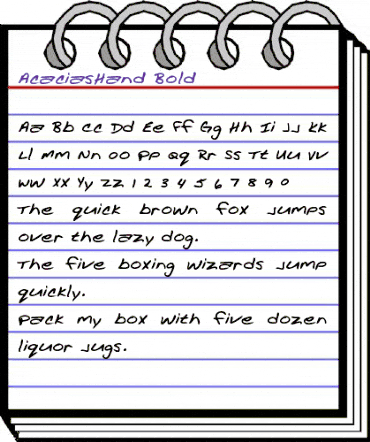 AcaciasHand Bold
Aa Bb Cc Dd Ee Ff Gg Hh Ii Jj Kk
Ll Mm Nn Oo Pp Qq Rr Ss Tt Uu Vv
Ww Xx Yy Zz 1 2 3 4 5 6 7 8 9 0
The quick brown fox jumps
over the lazy dog.
The five boxing wizards jump
quickly.
Pack my box with five dozen
liquor jugs.